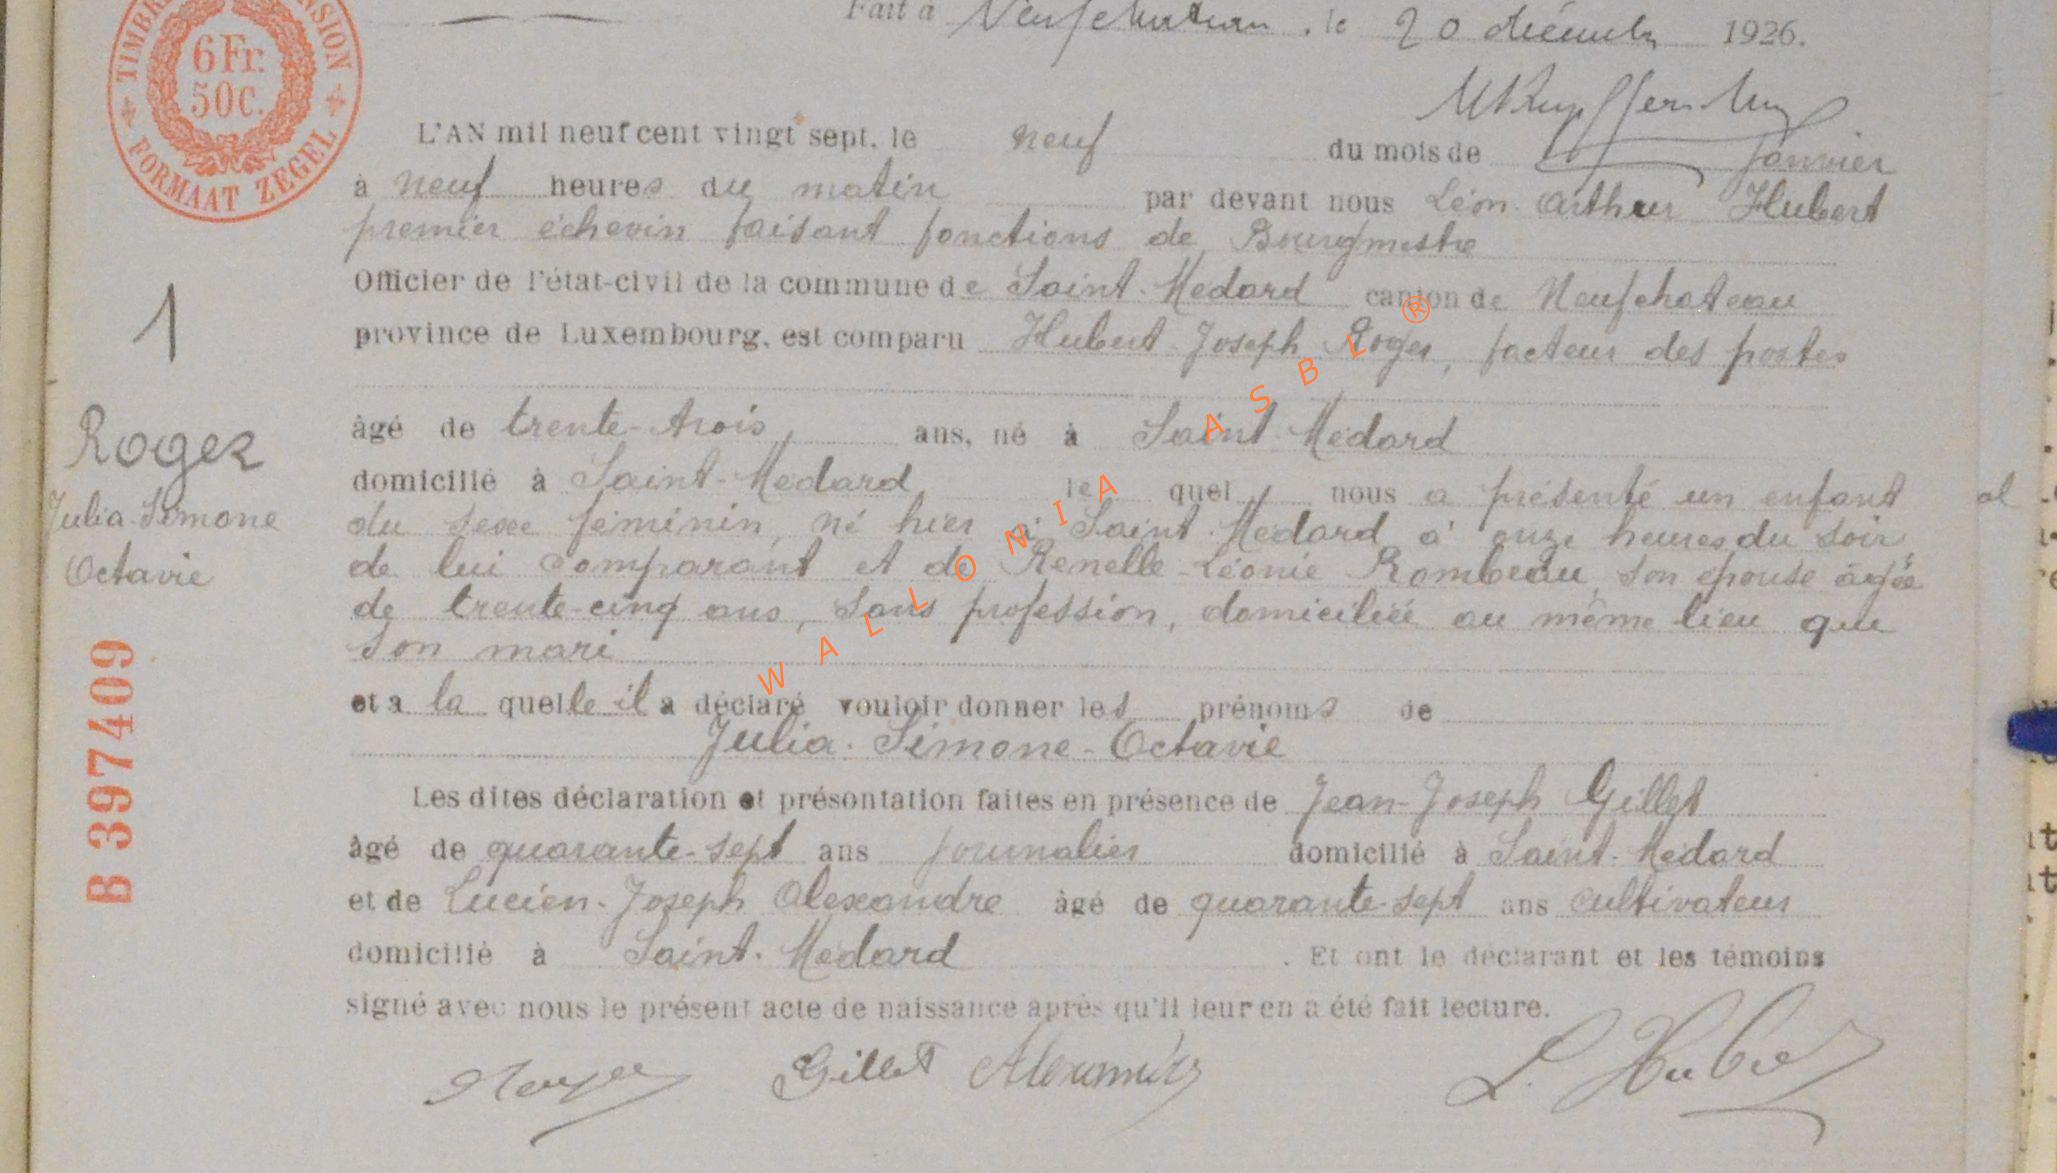 TIMBRE
6Fr.
50C.
FORMAAT ZEGEL
Fait à Neufchateau, le 20 décembre 1926.
L'AN mil neuf cent vingt sept, le neuf du mois de Janvier
à neuf heures du matin par devant nous Léon Arthur Hubert
premier échevin faisant fonctions de Bourgmestre
Officier de l'état-civil de la commune de Saint-Médard canton de Neufchateau
province de Luxembourg, est comparu Hubert-Joseph Roger, facteur des postes
âgé de trente-trois ans, né à Saint-Médard
domicilié à Saint-Médard lequel nous a présenté un enfant
du sexe féminin, né hier à Saint-Médard à onze heures du soir,
de lui comparant et de Renelle-Léonie Rombeau, son épouse âgée
de trente-cinq ans, sans profession, domiciliée au même lieu que
son mari
et a la quelle il a déclaré vouloir donner les prénoms de
Julia-Simone-Octavie
Les dites déclaration et présentation faites en présence de Jean-Joseph Gillet
âgé de quarante-sept ans journalier domicilié à Saint-Médard
et de Lucien-Joseph Alexandre âgé de quarante-sept ans cultivateur
domicilié à Saint-Médard. Et ont le déclarant et les témoins
signé avec nous le présent acte de naissance après qu'il leur en a été fait lecture.
HRoger Gillet Alexandre L. Hubert
1
Roger
Julia-Simone
Octavie
B 397409
WALLONIA ASBL®